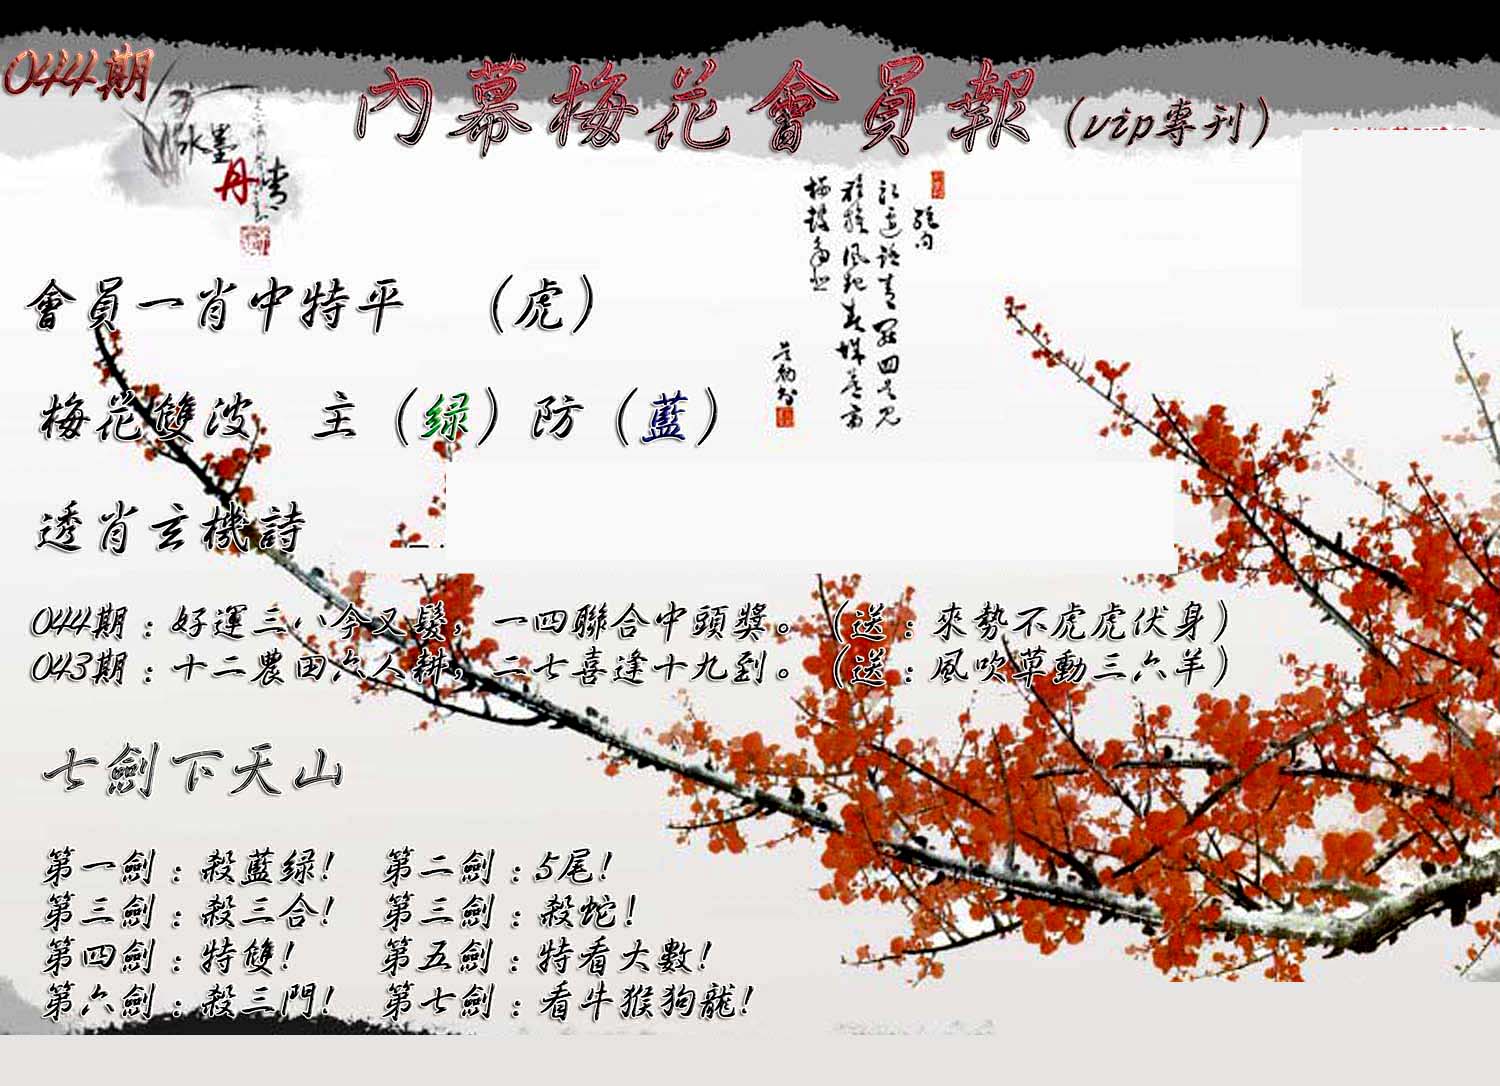 044期
內幕梅花會員報(vip專刊)
水墨
丹青
會員一肖中特平 (虎)
梅花雙波 主(绿)防(藍)
透肖玄機詩
044期:好運三八今又髮,一四聯合中頭獎。(送:來勢不虎虎伏身)
043期:十二農田六人耕,二七喜逢十九到。(送:風吹草動三六羊)
七劍下天山
第一劍:殺藍绿! 第二劍:5尾!
第三劍:殺三合! 第三劍:殺蛇!
第四劍:特雙! 第五劍:特看大數!
第六劍:殺三門! 第七劍:看牛猴狗龍!